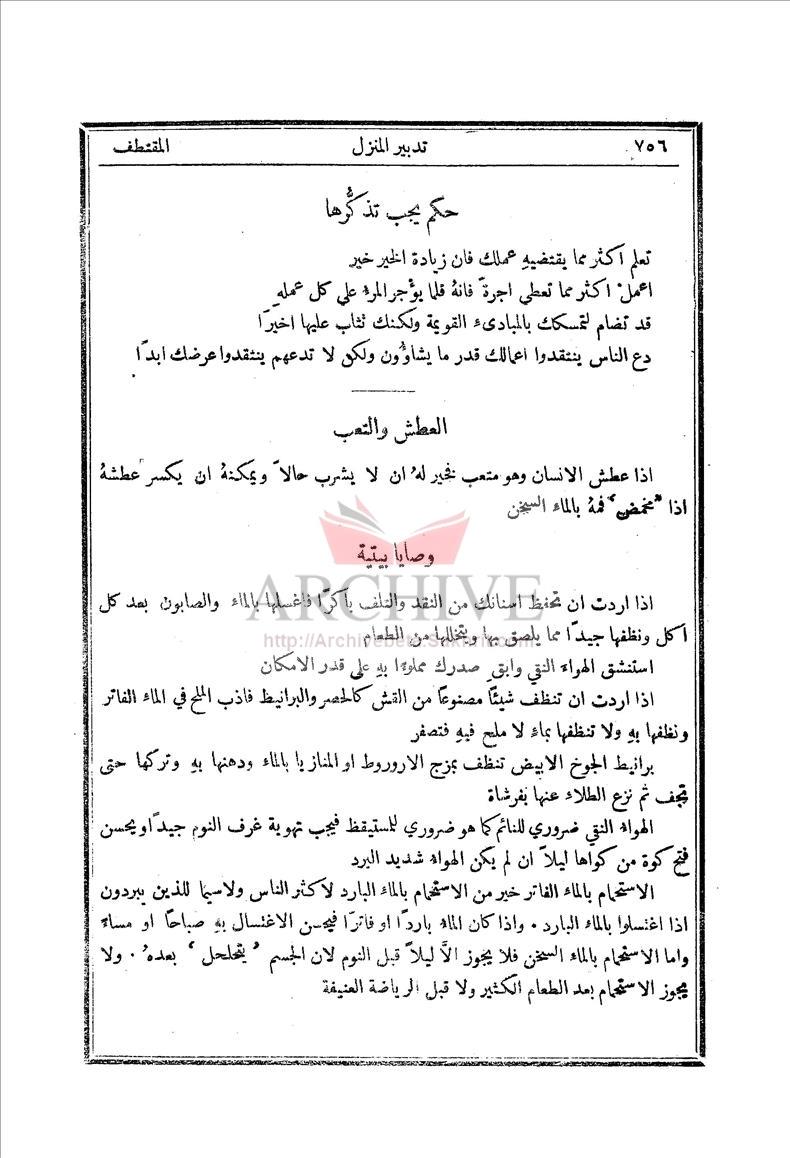 ٧٥٦ تدبير المنزل المقتطف
حكم يجب تذكُّرها
تعلم اكثر مما يقتضيهِ عملك فان زيادة الخير خير
اعملْ اكثر مما تعطي اجرةً فانهُ قلما يؤْجر المرءُ على كل عملهِ
قد تضام لتمسكك بالمبادىء القويمة ولكنك تثاب عليها اخيرًا
دع الناس ينتقدوا اعمالك قدر ما يشاؤُون ولكن لا تدعهم ينتقدوا عرضك ابدًا
العطش والتعب
اذا عطش الانسان وهو متعب فخير لهُ ان لا يشرب حالاً ويمكنهُ ان يكسر عطشهُ
اذا "مخمض" فمهُ بالماء السخن
وصايا بيتية
ARCHIVE
اذا اردت ان تحفظ اسنانك من النقد والتلف باكرًا فاغسلها بالماء والصابون بعد كل
اكل ونظفها جيدًا مما يلصق بها ويتخللها من الطعام
http://Archivebeta.Sakhrit.com
استنشق الهواء النقي وابقِ صدرك مملوءًا بهِ على قدر الامكان
اذا اردت ان تنظف شيئًا مصنوعًا من القش كالحصر والبرانيط فاذب الملح في الماء الفاتر
ونظفها بهِ ولا تنظفها بماء لا ملح فيهِ فتصفر
برانيط الجوخ الابيض تنظف بمزج الاروروط او المنازيا بالماء ودهنها بهِ وتركها حتى
تجف ثم نزع الطلاء عنها بفرشاة
الهواء النقي ضروري للنائم كما هو ضروري للمستيقظ فيجب تهوية غرف النوم جيدًا ويحسن
فتح كوة من كواها ليلاً ان لم يكن الهواء شديد البرد
الاستحمام بالماء الفاتر خير من الاستحمام بالماء البارد لاكثر الناس ولاسيما للذين يبردون
اذا اغتسلوا بالماء البارد . واذا كان الماء باردًا او فاترًا فيحسن الاغتسال بهِ صباحًا او مساءً
واما الاستحمام بالماء السخن فلا يجوز الاَّ ليلاً قبل النوم لان الجسم "يتحلحل" بعدهُ . ولا
يجوز الاستحمام بعد الطعام الكثير ولا قبل الرياضة العنيفة